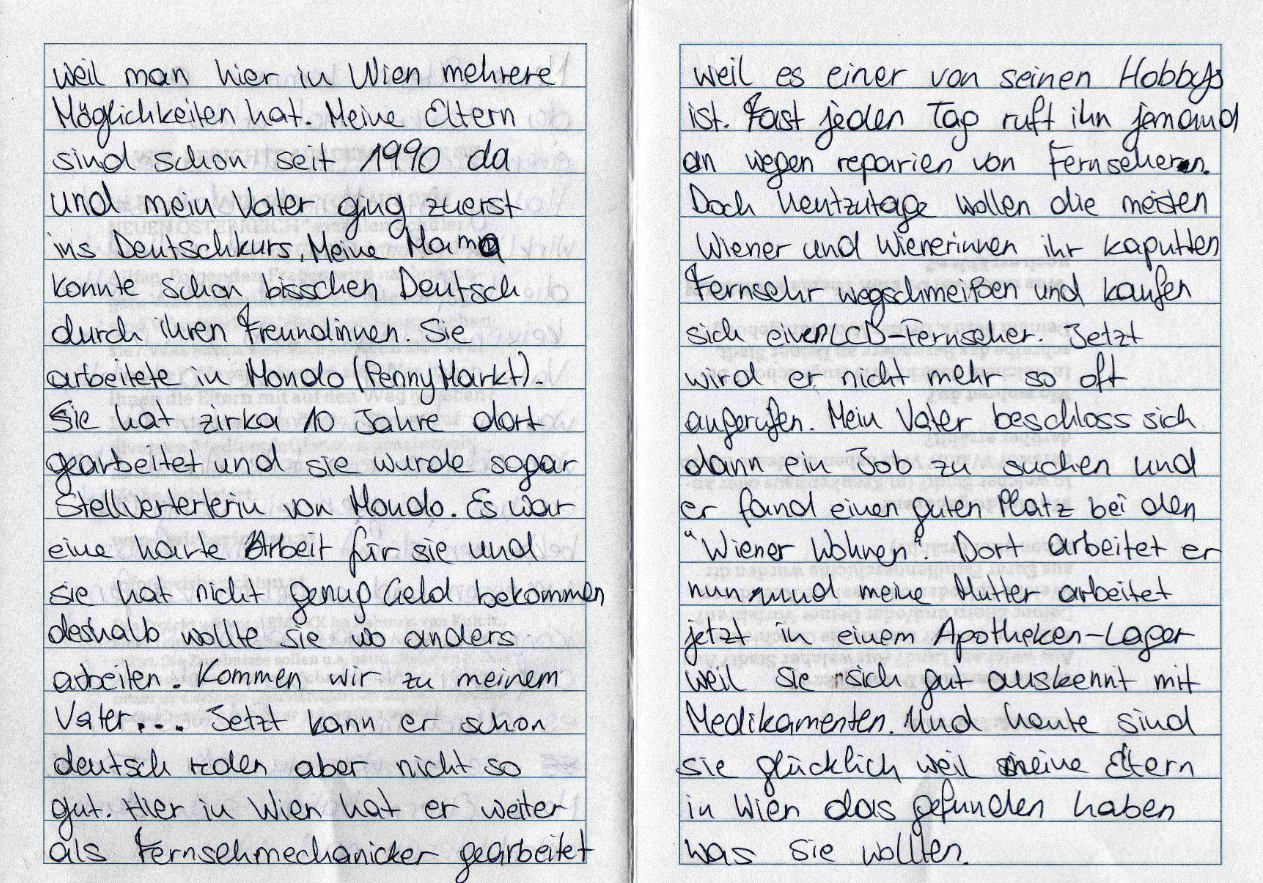 weil man hier in Wien mehrere
Möglichkeiten hat. Meine Eltern
sind schon seit 1990 da
und mein Vater ging zuerst
ins Deutschkurs, Meine Mama
konnte schon bisschen Deutsch
durch ihren Freundinnen. Sie
arbeitete in Mondo (Penny Markt).
Sie hat zirka 10 Jahre dort
gearbeitet und sie wurde sogar
Stellverterterin von Mondo. Es war
eine harte Arbeit für sie und
sie hat nicht genug Geld bekommen
deshalb wollte sie wo anders
arbeiten. Kommen wir zu meinem
Vater... Jetzt kann er schon
deutsch reden aber nicht so
gut. Hier in Wien hat er weiter
als Fernsehmechanicker gearbeitet
weil es einer von seinen Hobbys
ist. Fast jeden Tag ruft ihn jemand
an wegen reparien von Fernseher.
Doch heutzutage wollen die meisten
Wiener und Wienerinnen ihr kaputten
Fernsehr wegschmeißen und kaufen
sich einen LCD-Fernseher. Jetzt
wird er nicht mehr so oft
angerufen. Mein Vater beschloss sich
dann ein Job zu suchen und
er fand einen guten Platz bei den
"Wiener Wohnen". Dort arbeitet er
nun und meine Mutter arbeitet
jetzt in einem Apotheken-Lager
weil sie sich gut auskennt mit
Medikamenten. Und heute sind
sie glücklich weil meine Eltern
in Wien das gefunden haben
was sie wollten.